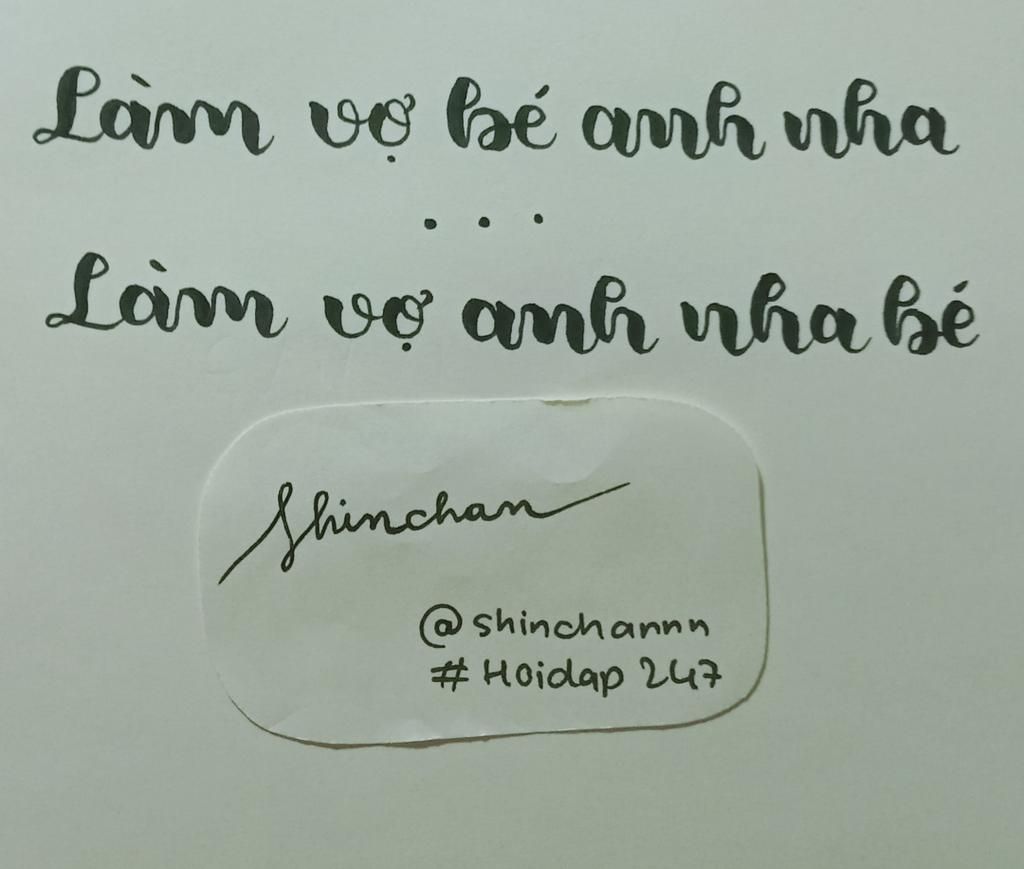 Làm vợ bé anh nha
...
Làm vợ anh nha bé
Shinchan
@shinchannn
#Hoidap247